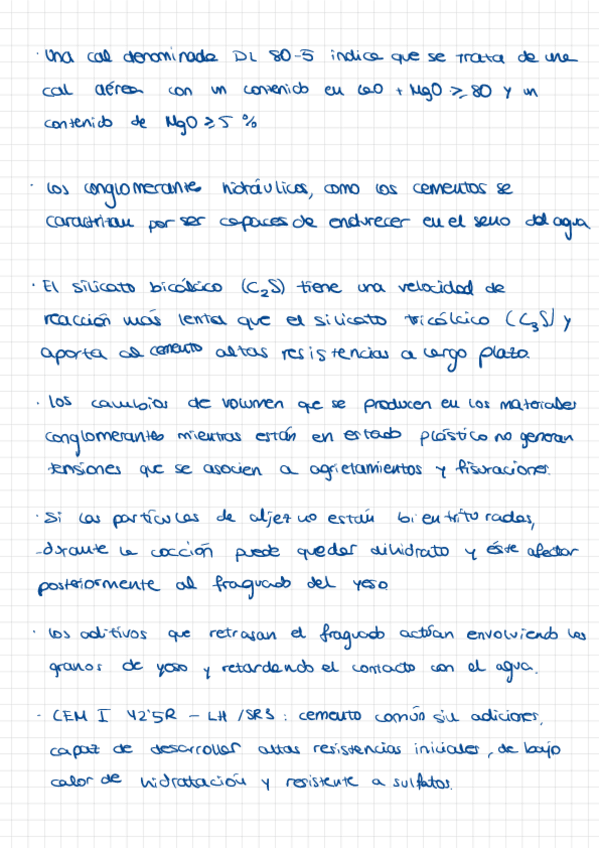 · Una cal denominada DL 80-5 indica que se trata de una
cal aérea con un contenido en CaO + MgO ≥ 80 y un
contenido de MgO ≥ 5 %
· Los conglomerante hidráulicos, como los cementos se
caractritan por ser capaces de endurecer en el seno del agua
· El silicato bicálcico (C₂S) tiene una velocidad de
reacción más lenta que el silicato tricálcico (C₃S) y
aporta al cemento altas resistencias a largo plazo.
· Los cambios de volumen que se producen en los materiales
conglomerantes mientras están en estado plástico no generan
tensiones que se asocien a agrietamientos y fisuraciones.
· Si las partículas de aljez no están bien trituradas,
durante la cocción puede quedar dihidrato y éste afectar
posteriormente al fraguado del yeso
· Los aditivos que retrasan el fraguado actúan envolviendo los
granos de yeso y retardando el contacto con el agua.
- CEM I 42'5R - LH /SR3 : cemento común sin adiciones,
capaz de desarrollar altas resistencias iniciales, de bajo
calor de hidratación y resistente a sulfatos.